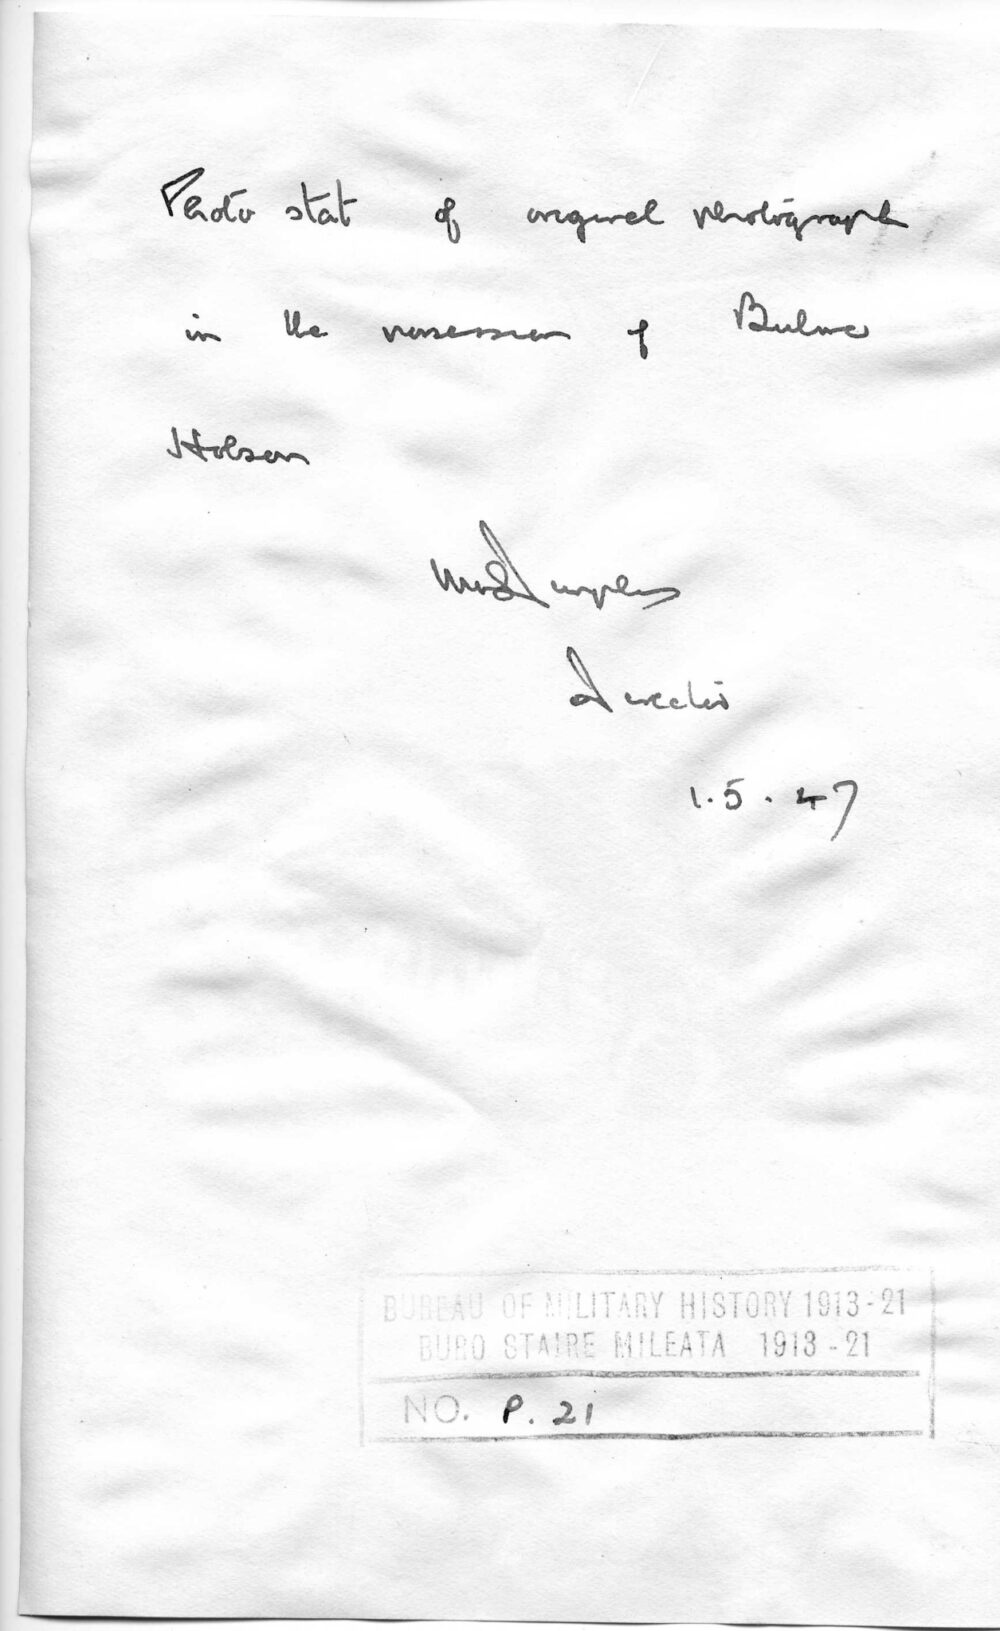 Photo stat of original photograph
in the possession of Bulmer
Hobson
Director
1.5.47
BUREAU OF MILITARY HISTORY 1913-21
BURO STAIRE MILEATA 1913-21
NO. P. 21